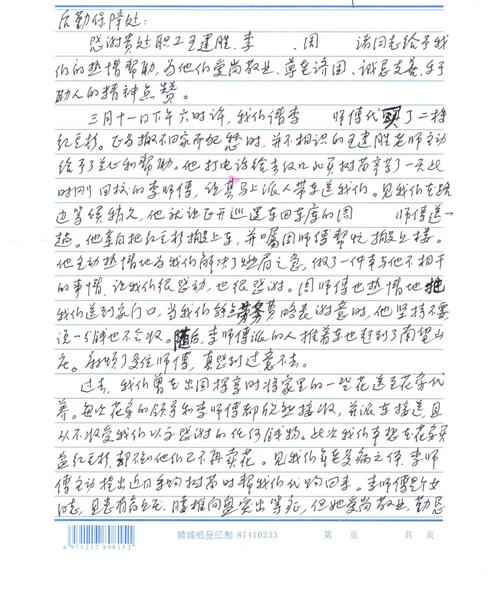 后勤保障处：
感谢贵处职工王建胜、李 、周 诸同志给予我
们的热情帮助，为他们爱岗敬业、尊老济困、诚恳友善、乐于
助人的精神点赞。
三月十一日下午六时许，我们请李 师傅代买了二棵
红豆杉。正为搬不回家而犯愁时，并不相识的王建胜老师主动
给予了关心和帮助。他打电话给去汉口北买树苗辛苦了一天此
时刚回校的李师傅，结果马上派人带车送我们。见我们在路
边等候稍久，他就让正开巡逻车回车库的周 师傅送一
趟。他亲自把红豆杉搬上车，并嘱周师傅帮忙搬上楼。
他主动热情地为我们解决了燃眉之急，做了一件本与他不相干
的事情，让我们很感动，也很感谢。周师傅也热情地把
我们送到家门口，当我们拿点劳务费略表谢意时，他坚持不要
说一分钱也不会收。随后，李师傅派的人推着车也赶到了南望山
庄。麻烦了多位师傅，真感到过意不去。
过去，我们曾在出国探亲时将家里的一些花送至花房代
养。每次花房的领导和李师傅都欣然接收，并派车接送，且
从不收受我们以示感谢的任何钱物。此次我们本想在花房买
盆红豆杉，却不知他们已不再卖花。见我们年老多病之体，李师
傅主动提出近日手购树苗时帮我们代购回来。李师傅是女
同志，且患有高血压、腰椎间盘突出等症，但她爱岗敬业，勤恳
6 971217 808152
狮城纸品印制 87410233
第 页
共 页